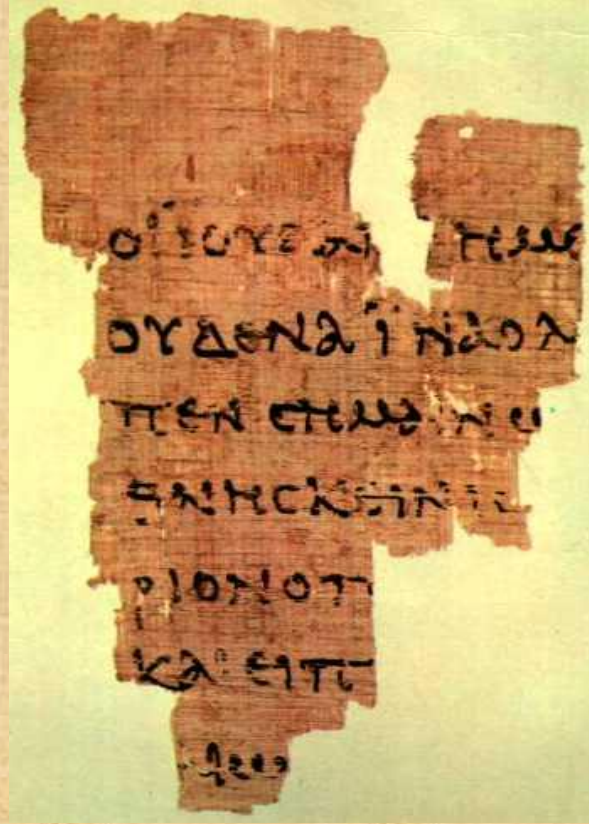 ΟΙΪΟΥΔΑΙ ΗΜΕ
ΟΥΔΕΝΑΪΝΑΟΛ
ΠΕΝϹΗΜΑΙΝω
ΘΝΗϹΚΕΙΝΙϹ
ΡΙΟΝΟΠ
ΚΑΙΕΙΠ